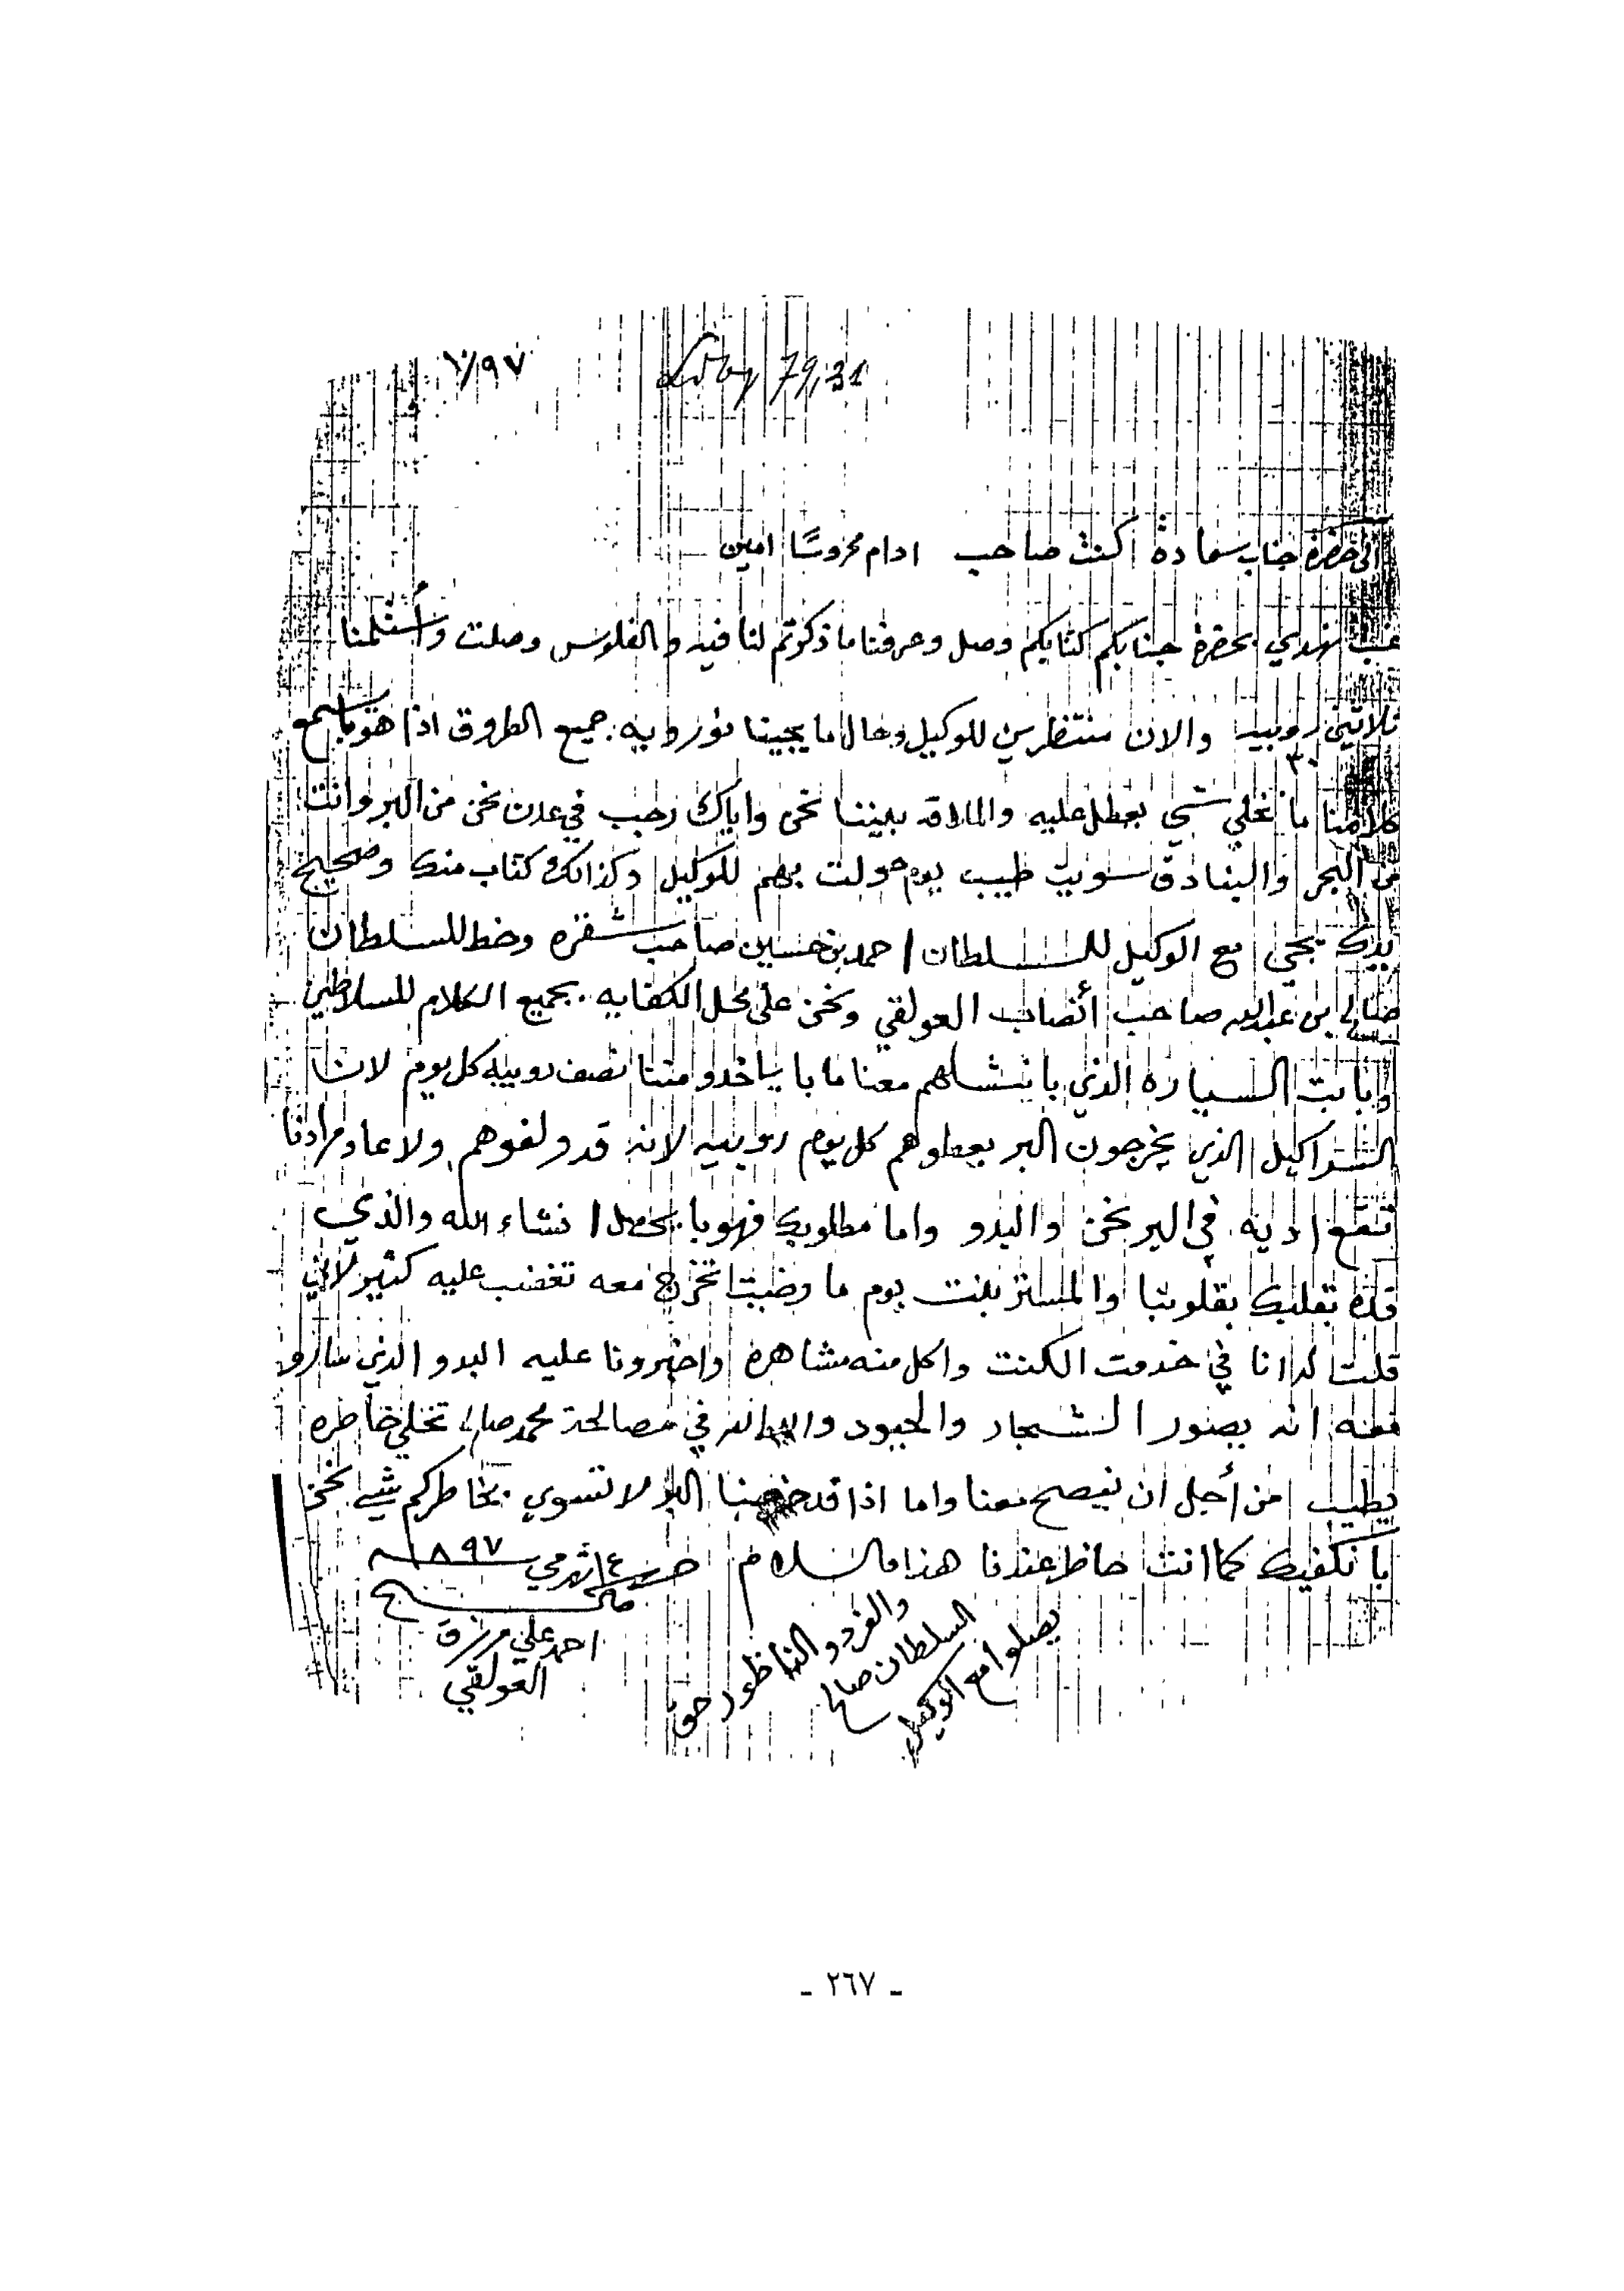 ١/٩٧
79,31
الى حضرة جناب سعادة اكنت صاحب ادام محروسًا امين
غب نهدي بحضرة جنابكم كتابكم وصل وعرفنا ما ذكرتم لنا فيه والفلوس وصلت وأستلمنا
ثلاتين روبيه والان منتظرين للوكيل وحال ما يجينا نوروبه جميع الطروق اذا هو باسمع
٣٠
كلامنا ما نخلي شي بعطل عليه والملاقه بيننا نحن واياك رجب في عدن نحن من البر وانت
من البحر والبنادق سويت طيب يوم حولت بهم للوكيل وكذالك كتاب منك وصحيح
بيدك يجي مع الوكيل للسلطان احمد بن حسين صاحب شقره وخط للسلطان
صالح بن عبدالله صاحب أنصاب العولقي ونحن على محل الكفايه بجميع الكلام للسلاطين
وبابت السياره الذي بانشلهم معنا ما با ياخدو مننا نصف روبيه كل يوم لان
السراكيل الذي يخرجون البر يعطوهم كل يوم روبيه لانه قد ولفوهم ولا عاد مرادنا
تقع اديه في البر نحن والبدو واما مطلوبك فهو با يحصل انشاء الله والذي
قده بقلبك بقلوبنا والمستر بنت يوم ما رضيت تخرج معه تغضب عليه كثير لاني
قلت له انا في خدمت الكنت واكل منه مشاهره واخبرونا عليه البدو الذي سارو
معه انه يصور الشجار والحيود في مصالحة محمد صالح تخلي خاطره
يطيب من أجل ان نيصح معنا واما اذا قد البر لا تسوي بخاطركم شي نحن
با نكفيك كما انت حاظر عندنا هذا والسلام حرر ١٤ شهر مي ١٨٩٧
صح
احمد علي مرزق
العولقي
والفرد والناظور حق
السلطان صالح
يصلوا مع الوكيل
- ٢٦٧ -